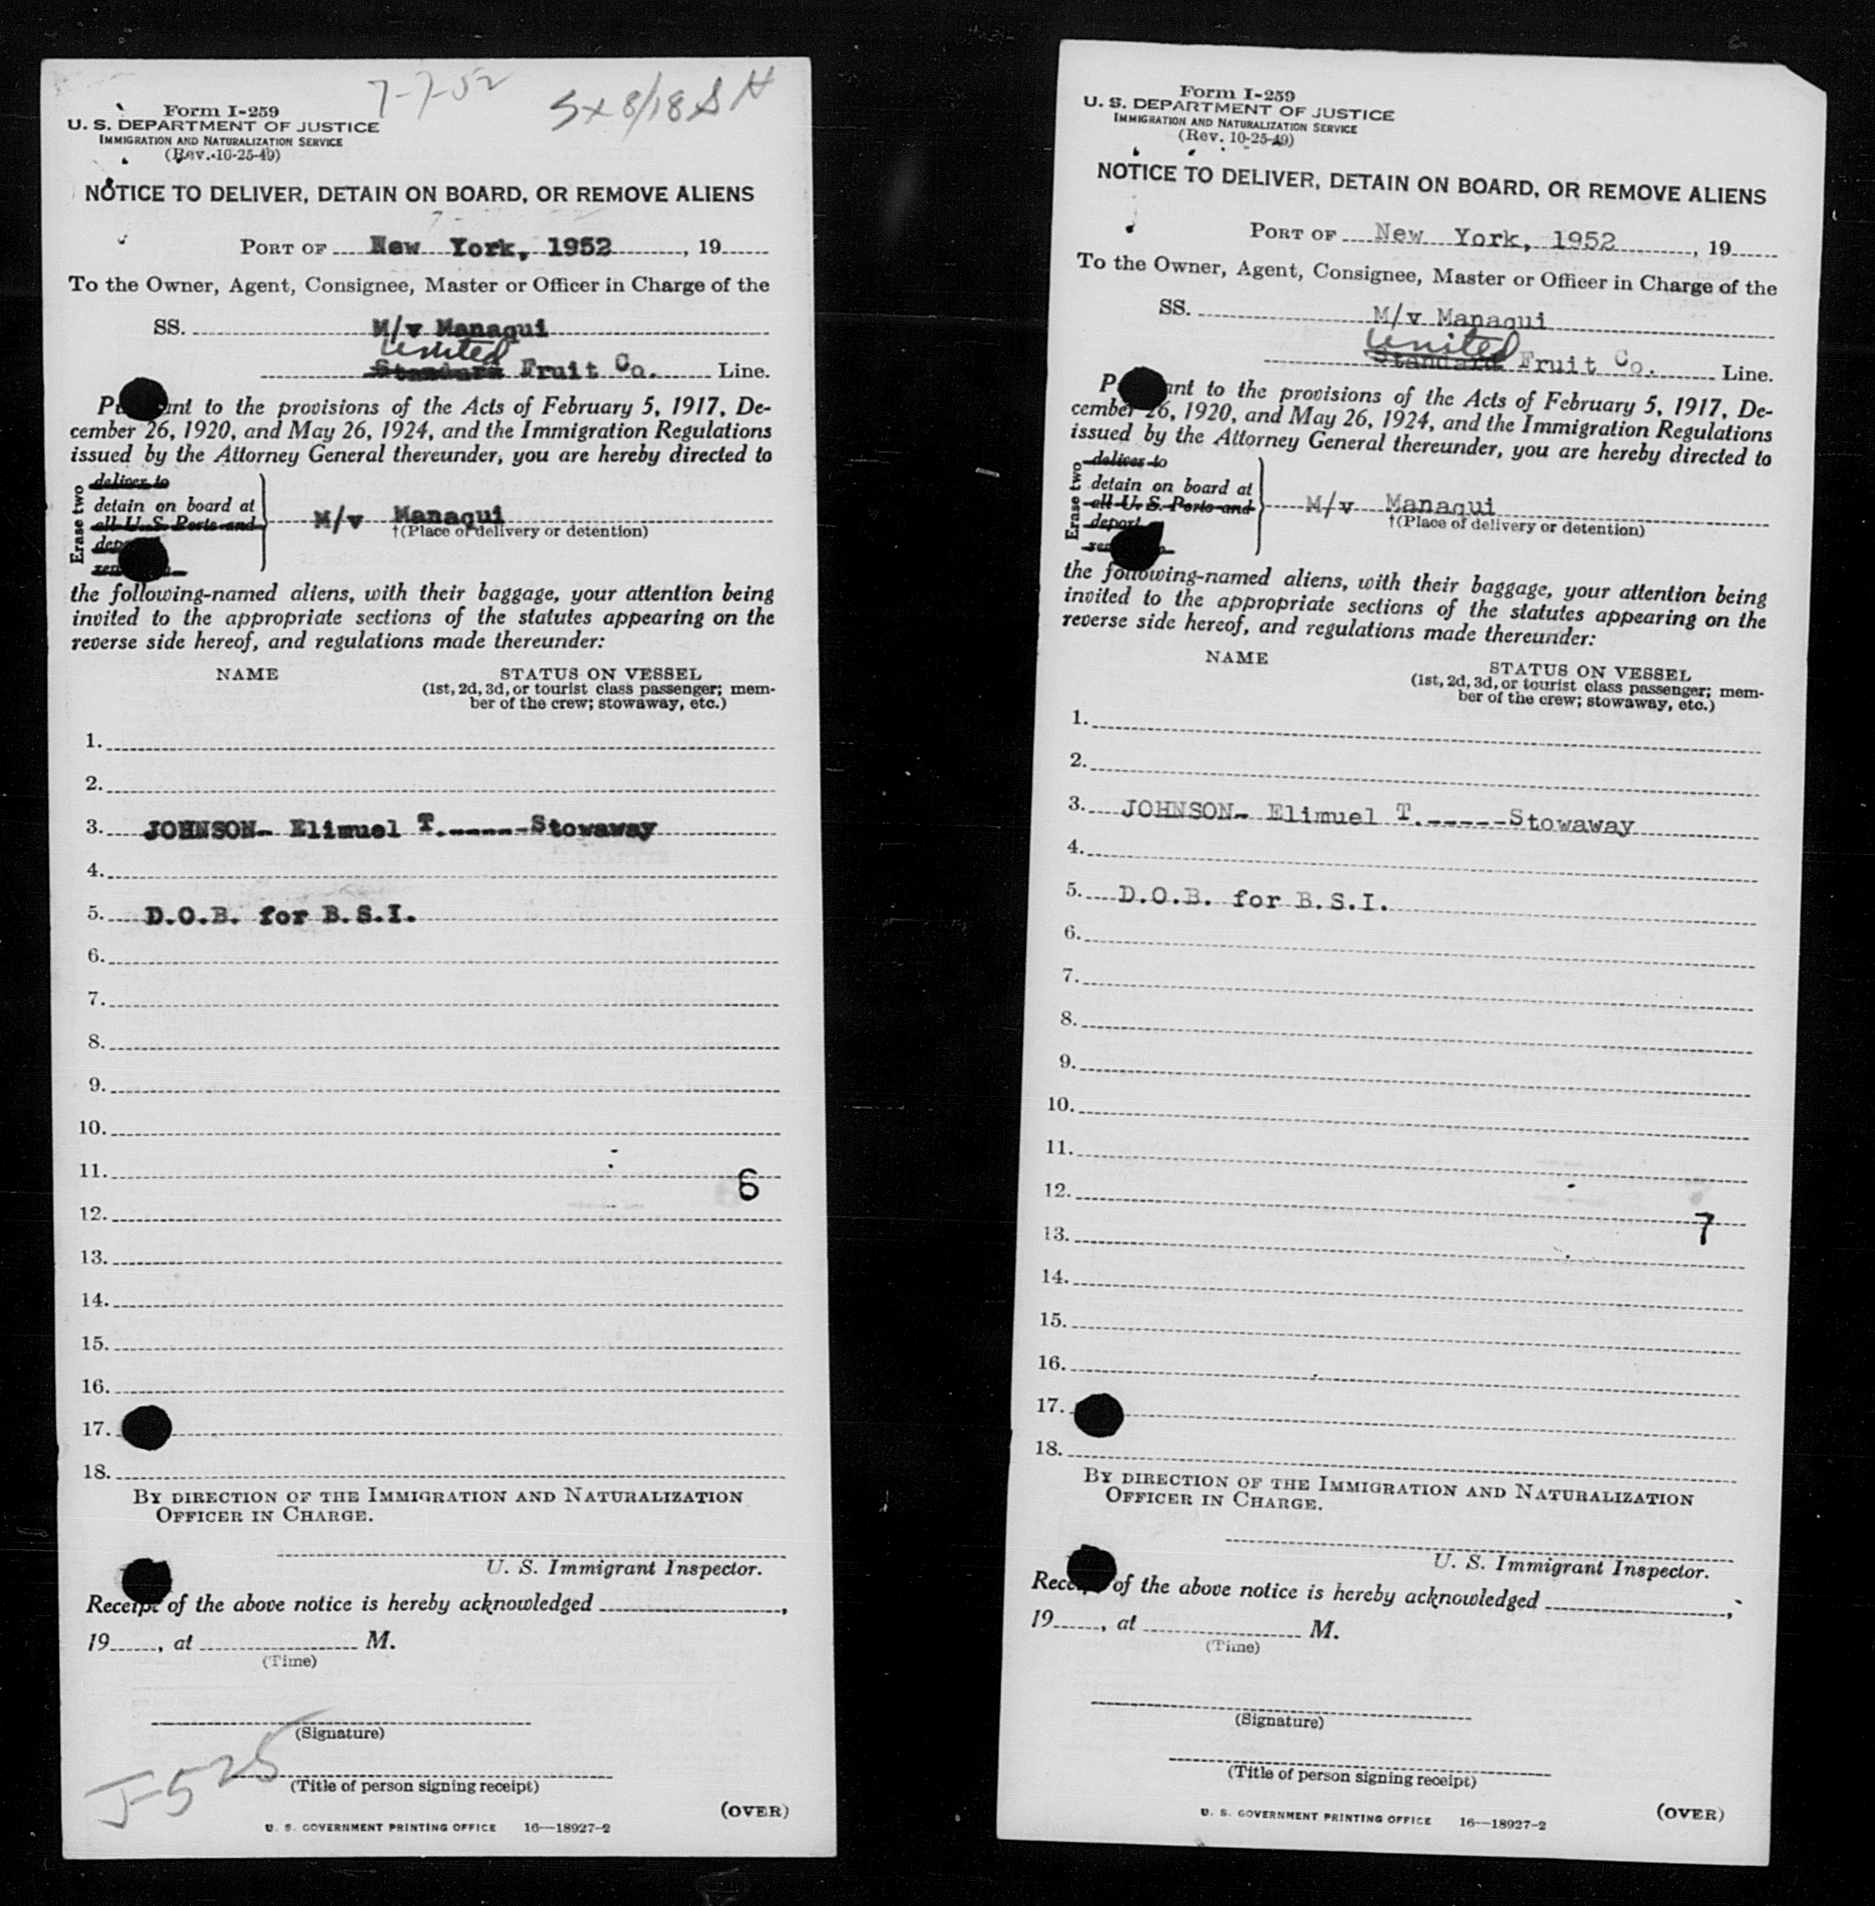 7-7-52
Sx 8/18 S H
Form I-259
U. S. DEPARTMENT OF JUSTICE
IMMIGRATION AND NATURALIZATION SERVICE
(Rev. 10-25-49)
NOTICE TO DELIVER, DETAIN ON BOARD, OR REMOVE ALIENS
PORT OF New York, 1952, 19
To the Owner, Agent, Consignee, Master or Officer in Charge of the
SS. M/v Managui
United
Standard Fruit Co. Line.
to the provisions of the Acts of February 5, 1917, De-
cember 26, 1920, and May 26, 1924, and the Immigration Regulations
issued by the Attorney General thereunder, you are hereby directed to
Erase two
deliver to
detain on board at
all U. S. Ports and
M/v Managui
†(Place of delivery or detention)
the following-named aliens, with their baggage, your attention being
invited to the appropriate sections of the statutes appearing on the
reverse side hereof, and regulations made thereunder:
NAME
STATUS ON VESSEL
(1st, 2d, 3d, or tourist class passenger; mem-
ber of the crew; stowaway, etc.)
1.
2.
3. JOHNSON- Elimuel T.-----Stowaway
4.
5. D.O.B. for B.S.I.
6.
7.
8.
9.
10.
11.
6
12.
13.
14.
15.
16.
17.
18.
BY DIRECTION OF THE IMMIGRATION AND NATURALIZATION
OFFICER IN CHARGE.
U. S. Immigrant Inspector.
Receipt of the above notice is hereby acknowledged ,
19 , at M.
(Time)
(Signature)
J-525
(Title of person signing receipt)
(OVER)
U. S. GOVERNMENT PRINTING OFFICE 16—18927-2
Form I-259
U. S. DEPARTMENT OF JUSTICE
IMMIGRATION AND NATURALIZATION SERVICE
(Rev. 10-25-49)
NOTICE TO DELIVER, DETAIN ON BOARD, OR REMOVE ALIENS
PORT OF New York, 1952, 19
To the Owner, Agent, Consignee, Master or Officer in Charge of the
SS. M/v Managui
United
Standard Fruit Co. Line.
to the provisions of the Acts of February 5, 1917, De-
cember 26, 1920, and May 26, 1924, and the Immigration Regulations
issued by the Attorney General thereunder, you are hereby directed to
Erase two
deliver to
detain on board at
all U. S. Ports and
deport
M/v Managui
†(Place of delivery or detention)
the following-named aliens, with their baggage, your attention being
invited to the appropriate sections of the statutes appearing on the
reverse side hereof, and regulations made thereunder:
NAME
STATUS ON VESSEL
(1st, 2d, 3d, or tourist class passenger; mem-
ber of the crew; stowaway, etc.)
1.
2.
3. JOHNSON- Elimuel T.-----Stowaway
4.
5. D.O.B. for B.S.I.
6.
7.
8.
9.
10.
11.
12.
7
13.
14.
15.
16.
17.
18.
BY DIRECTION OF THE IMMIGRATION AND NATURALIZATION
OFFICER IN CHARGE.
U. S. Immigrant Inspector.
Receipt of the above notice is hereby acknowledged ,
19 , at M.
(Time)
(Signature)
(Title of person signing receipt)
(OVER)
U. S. GOVERNMENT PRINTING OFFICE 16—18927-2